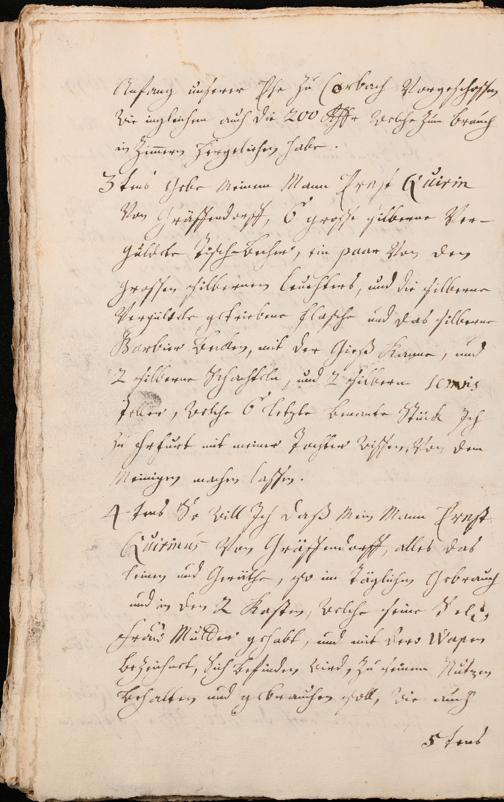 Anfang unserer Ehe zu Corbach Vorgeschossen
wie ingleichen auch die 200 welche zum brauch
in Zimmern hergeliehen habe.
3tens Gebe Meinem Mann Ernst Quirin
Von Gräffendorff, 6 grosse silberne Ver-
guldete Tisch-becher, ein paar Von den
grossen silbernen leuchters, und die silberne
Vergüldete getriebene flasche und das silberne
Barbier becken, mit der Gieß Kanne, und
2 silberne Schachteln, und 2 silberne
welche 6 letzte benante Stück Ich
zu Erfurt mit meiner Tochter wissen, Von dem
Meinigen machen lassen.
4tens So will Ich daß Mein Mann Ernst
Quirinus Von Gräffendorff, alles das
leinen und Geräthe, so im täglichen Gebrauch
und in den 2 Kasten, welche seine
Frau Mutter gehabt, und mit Wapen
bezeichnet, sich befinden wird, zu seinem Nutzen
behalten und gebrauchen soll, wie auch
5tens